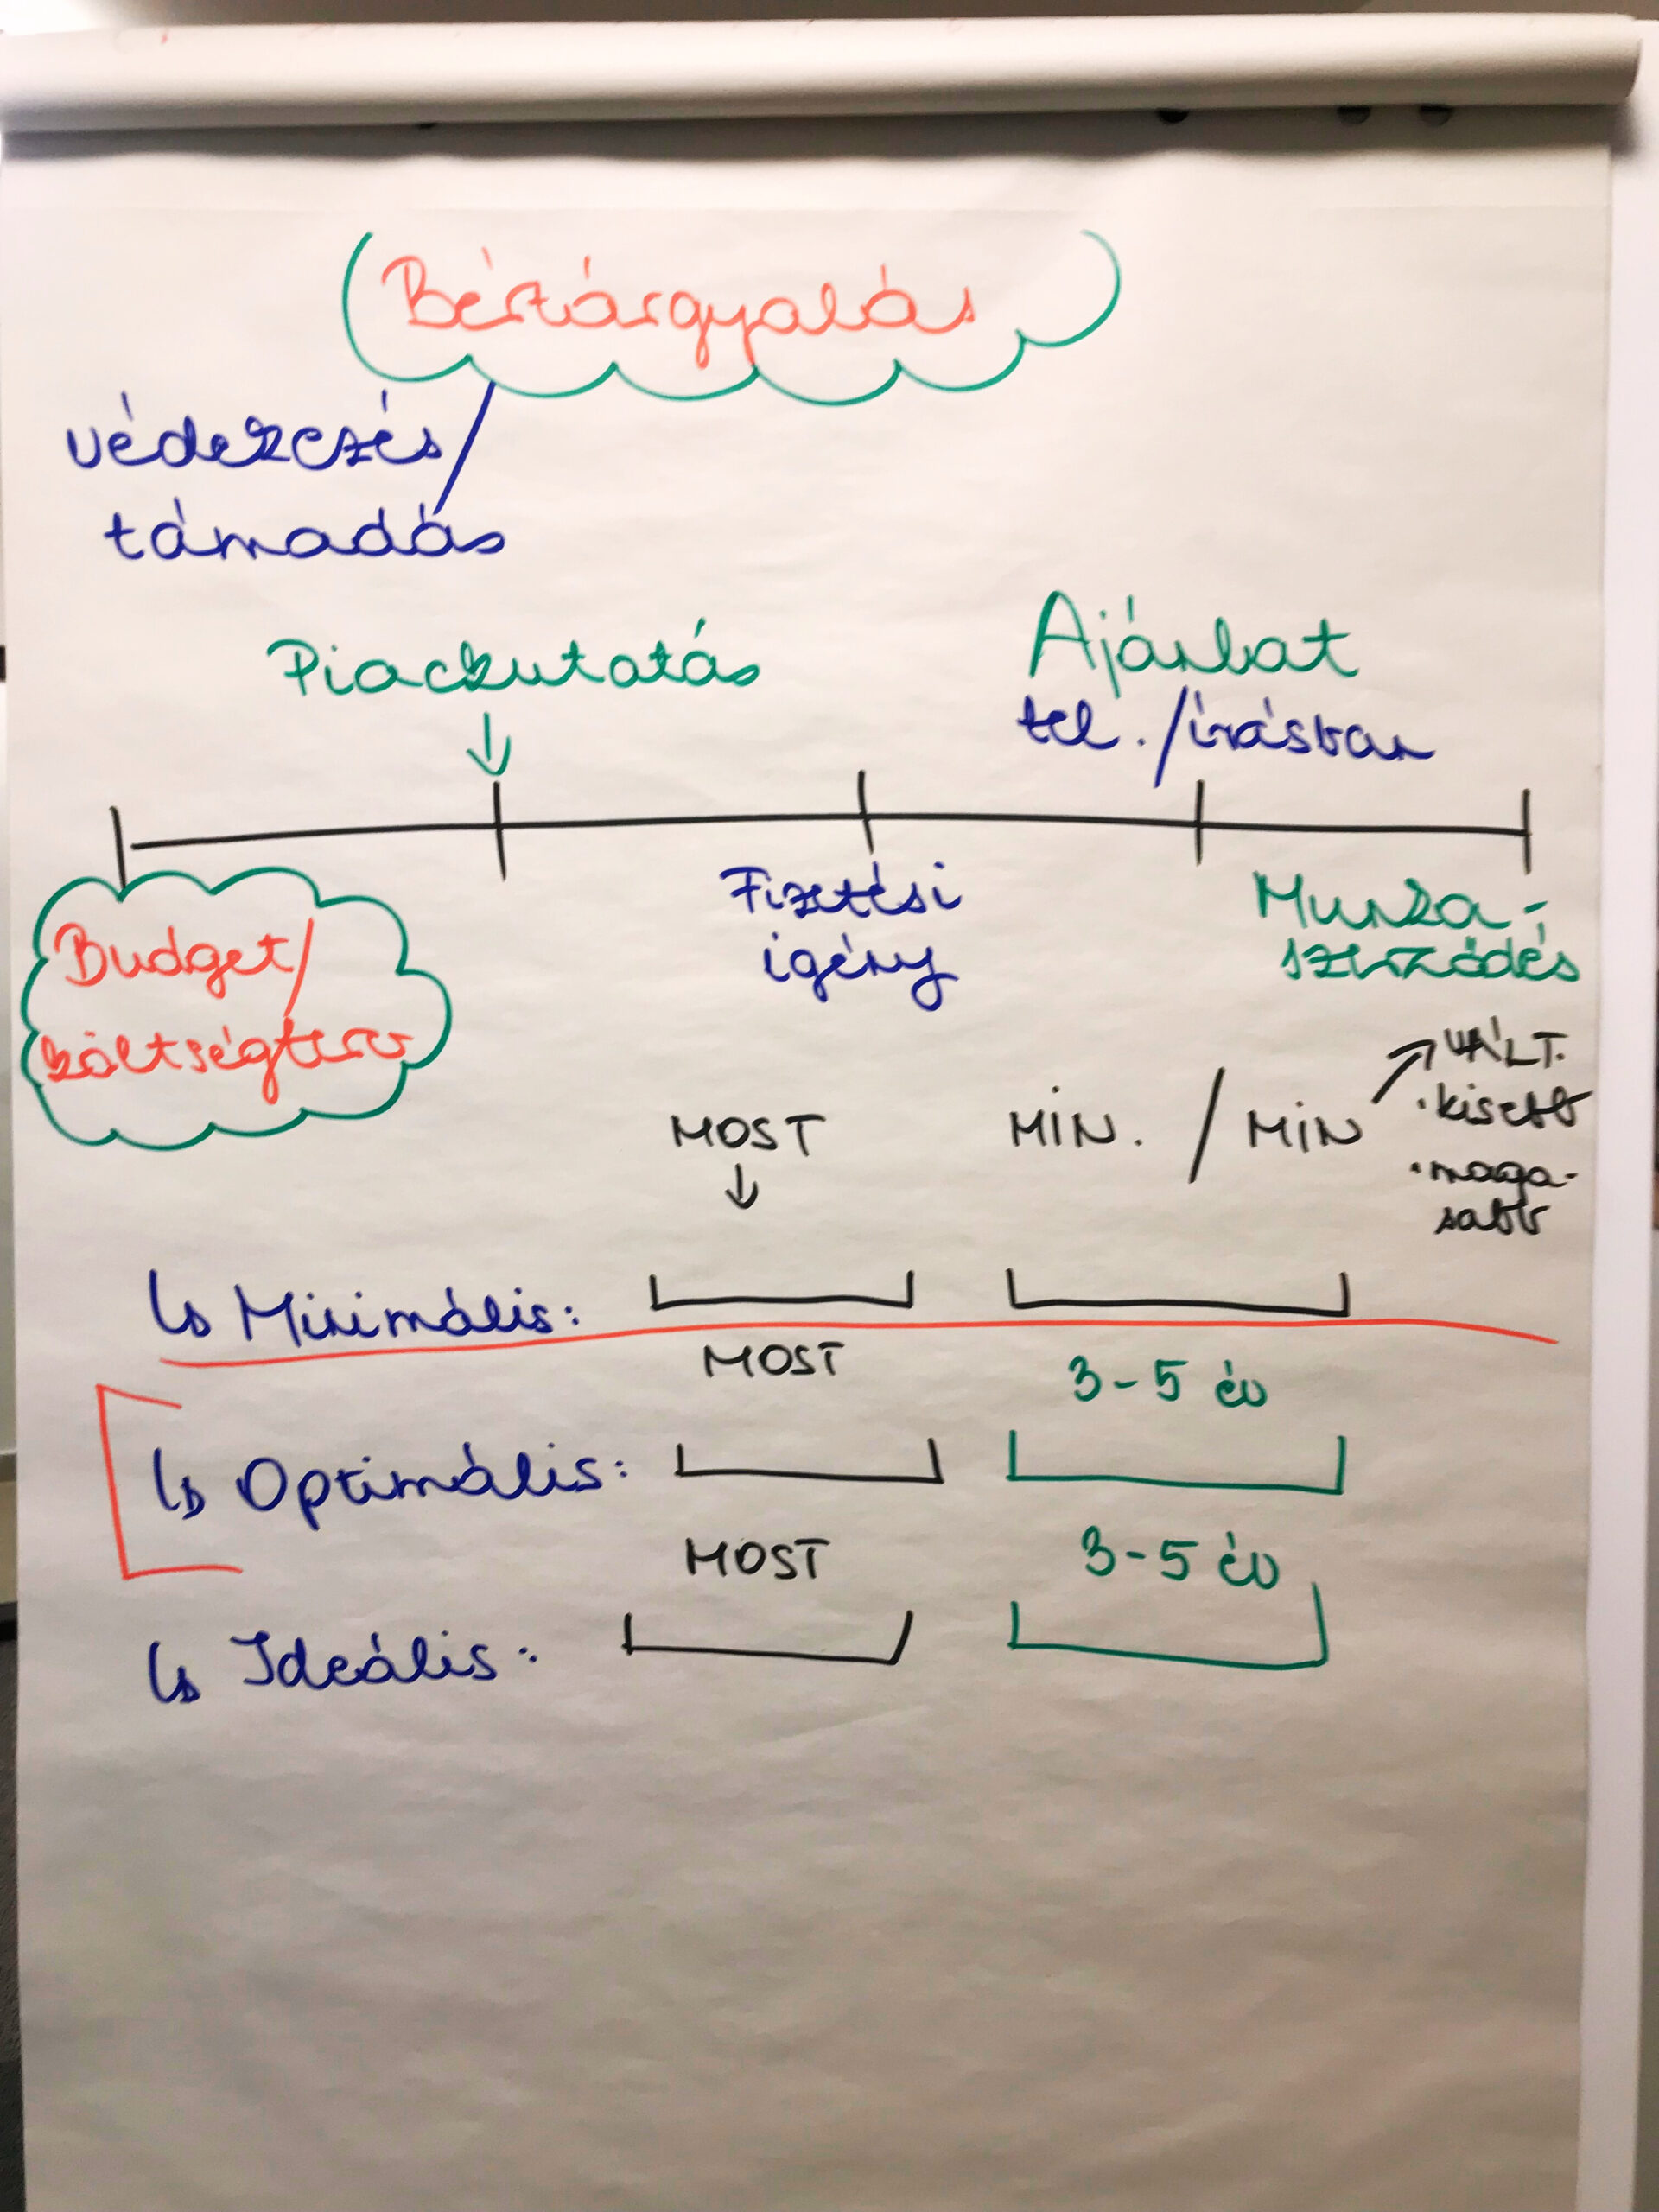 Bértárgyalás
védekezés/
támadás
Piackutatás
Ajánlat
tel. /írásban
Fizetési
igény
Munka-
szerződés
Budget/
költségterv
MOST
MIN. / MIN
VÁLT.
• kisebb
• maga-
sabb
↳ Minimális:
MOST
3-5 év
↳ Optimális:
MOST
3-5 év
↳ Ideális: